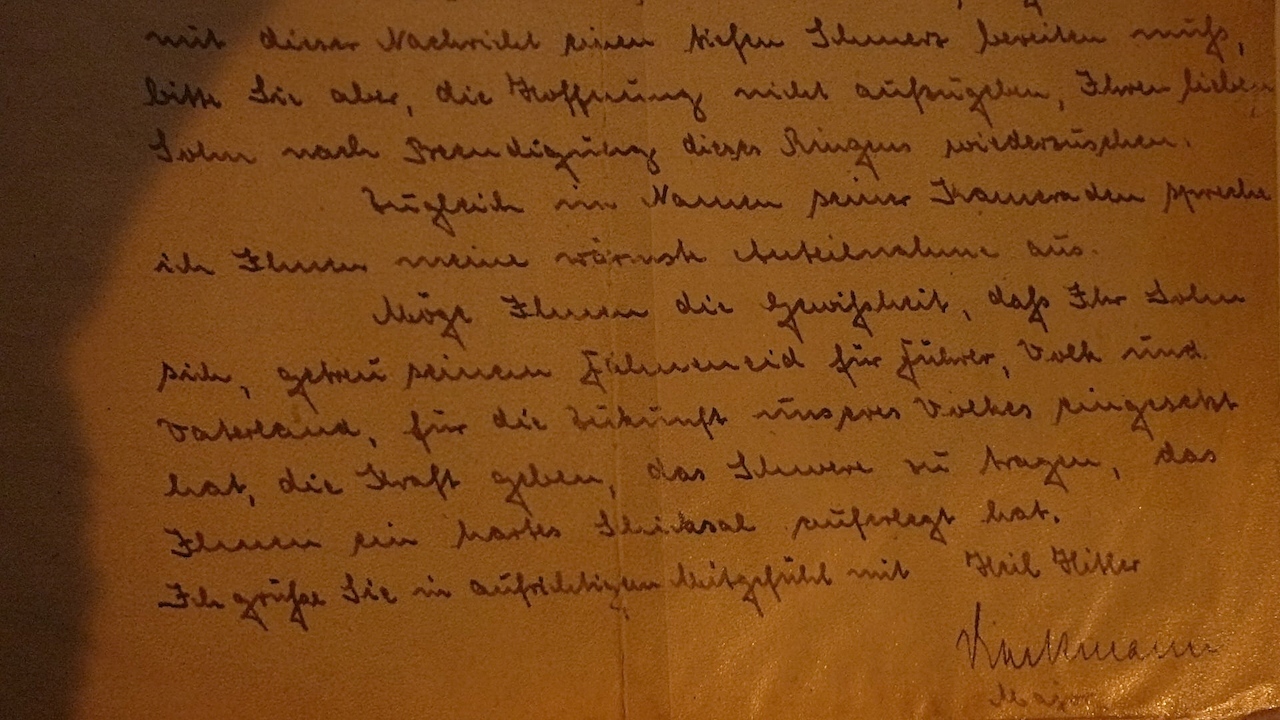 mit dieser Nachricht einen tiefen Schmerz bereiten muß,
bitte Sie aber, die Hoffnung nicht aufzugeben, Ihren lieben
Sohn nach Beendigung dieses Ringens wiederzusehen.
Zugleich im Namen seiner Kameraden spreche
ich Ihnen meine wärmste Anteilnahme aus.
Möge Ihnen die Gewißheit, daß Ihr Sohn
sich, getreu seinem Fahneneid für Führer, Volk und
Vaterland, für die Zukunft unseres Volkes eingesetzt
hat, die Kraft geben, das Schwere zu tragen, das
Ihnen ein hartes Schicksal auferlegt hat.
Ich grüße Sie in aufrichtigem Mitgefühl mit Heil Hitler
Major